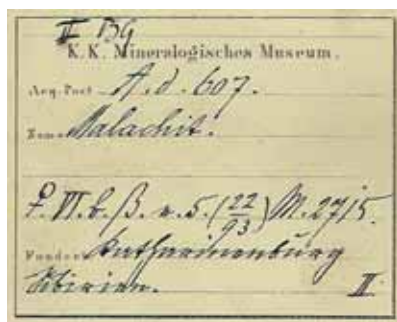 II BG
K. K. Mineralogisches Museum.
Acq. Post A. d. 607.
Name Malachit.
VI. b. β. v. 5. (22/93) M. 2715.
Fundort Katharinenburg
Sibirien. II